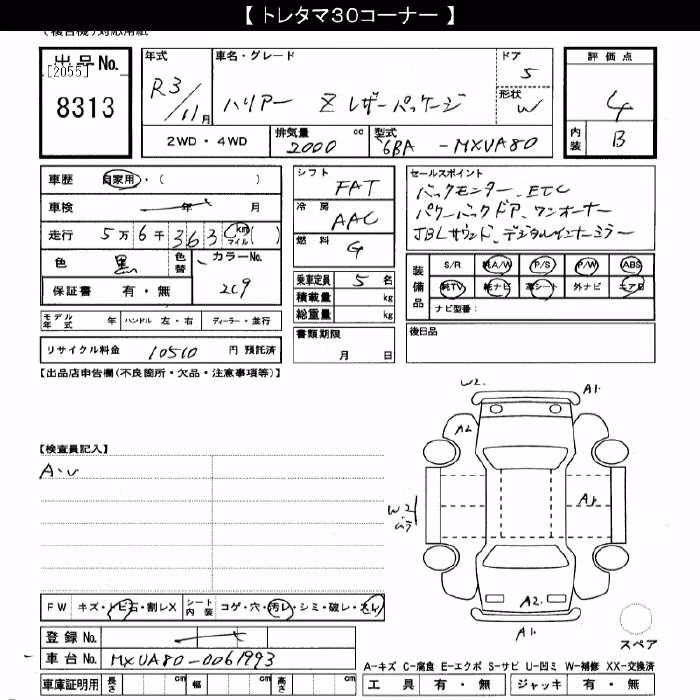 【 トレタマ30コーナー 】
(複合機)対応用紙
出品No.
[2055]
8313
年式
R3/11月
車名・グレード
ハリアー Z レザーパッケージ
ドア
5
形状
W
2WD・4WD
排気量
2000 cc
型式
6BA - MXUA80
評価点
4
内装
B
車歴 自家用・( )
車検 年 月
走行 5万6千363 km マイル ( )
色 黒
色替
カラーNo.
209
保証書 有・無
モデル年式 年
ハンドル 左・右
ディーラー・並行
リサイクル料金 10510 円 預託済
シフト
FAT
冷房
AAC
燃料
G
乗車定員 5 名
積載量 kg
総重量 kg
書類期限
月 日
セールスポイント
バックモニター、ETC
パワーバックドア、ワンオーナー
JBLサウンド、デジタルインナーミラー
装備品
S/R 純A/W P/S P/W ABS
純TV 純ナビ 革シート 外ナビ エアB
ナビ型番:
後日品
【出品店申告欄(不良箇所・欠品・注意事項等)】
【検査員記入】
A・U
W2
A1
A2
W2
A1
A2
A1
スペア
FW キズ・トビ石・割レX
シート内装 コゲ・穴・汚レ・シミ・破レ・スレ
登録No.
車台No. MXUA80-0061993
車庫証明用 長さ cm 幅 cm 高さ cm
A-キズ C-腐食 E-エクボ S-サビ U-凹ミ W-補修 XX-交換済
工具 有・無 ジャッキ 有・無